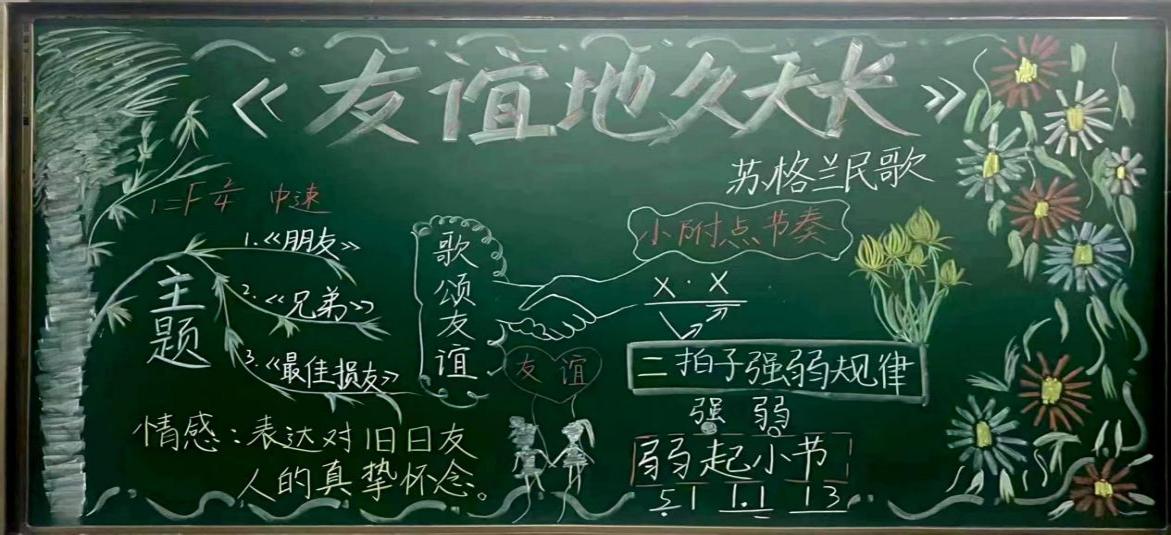 《友谊地久天长》
苏格兰民歌
1=F 2/4 中速
主题
1.《朋友》
2.《兄弟》
3.《最佳损友》
情感：表达对旧日友
人的真挚怀念。
歌颂友谊
友谊
小附点节奏
X · X
二拍子强弱规律
强 弱
弱起小节
5 1 1.1 1 3